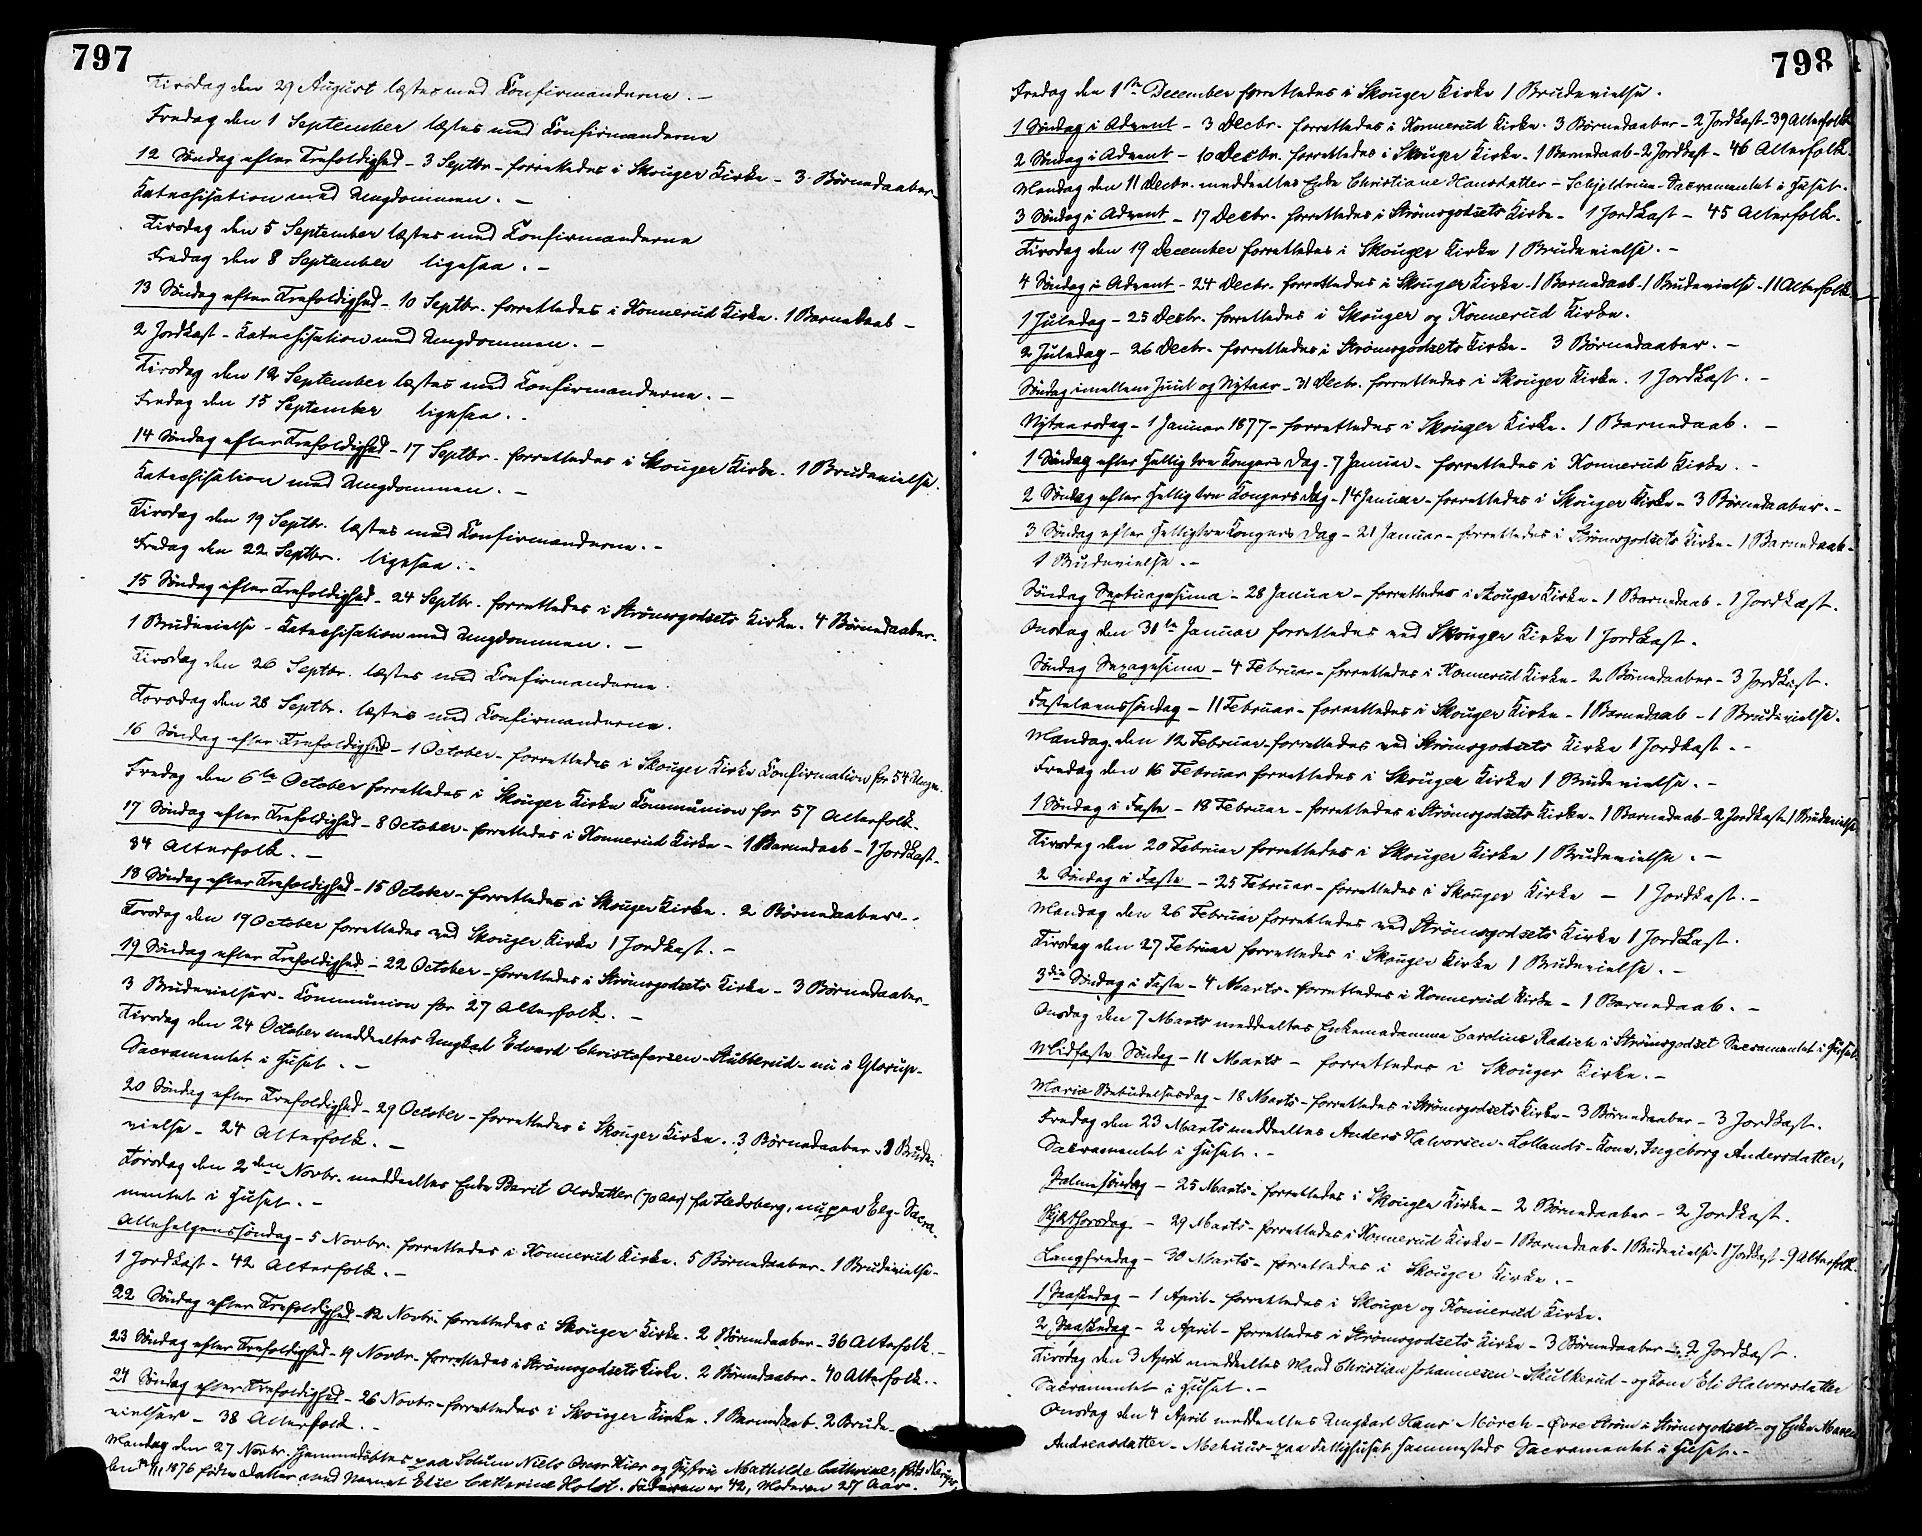 797
Tirsdag den 29 August læstes med Confirmanderne. –
Fredag den 1 September læstes med Confirmanderne
12 Søndag efter Trefoldighed – 3 Septbr – forrettedes i Skouger Kirke – 3 Børnedaaber –
Katechisation med Ungdommen. –
Tirsdag den 5 September læstes med Confirmanderne
Fredag den 8 September ligesaa. –
13 Søndag efter Trefoldighed – 10 Septbr. forrettedes i Konnerud Kirke. 1 Barnedaab –
2 Jordkast – Katechisation med Ungdommen. –
Tirsdag den 12 September læstes med Confirmanderne. –
Fredag den 15 September ligesaa. .
14 Søndag efter Trefoldighed – 17 Septbr. forrettedes i Skouger Kirke. 1 Brudevielse.
Katechisation med Ungdommen. –
Tirsdag den 19 Septbr. læstes med Confirmanderne. –
Fredag den 22 Septbr. ligesaa. –
15 Søndag efter Trefoldighed – 24 Septbr. forrettedes i Strømsgodsets Kirke. 4 Børnedaaber.
1 Brudevielse – Katechisation med Ungdommen. –
Tirsdag den 26 Septbr. læstes med Confirmanderne.
Torsdag den 28 Septbr. læstes med Confirmanderne.
16 Søndag efter Trefoldighed – 1 October – forrettedes i Skouger Kirke Confirmation for 54 Unge.
Fredag den 6te October forrettedes i Skouger Kirke Communion for 57 Alterfolk.
17 Søndag efter Trefoldighed – 8 October – forrettedes i Konnerud Kirke – 1 Barnedaab – 1 Jordkast –
34 Alterfolk. –
18 Søndag efter Trefoldighed – 15 October – forrettedes i Skouger Kirke. 2 Børnedaaber. .
Torsdag den 19 October forrettedes ved Skouger Kirke 1 Jordkast. –
19 Søndag efter Trefoldighed – 22 October – forrettedes i Strømsgodsets Kirke – 3 Børnedaaber –
3 Brudevielser – Communion for 27 Alterfolk. –
Tirsdag den 24 October meddeeltes Ungkarl Edvard Christofersen – Stubberud – nu i Glorup –
Sacramentet i Huset. –
20 Søndag efter Trefoldighed – 29 October – forrettedes i Skouger Kirke. 3 Børnedaaber. 1 Brude-
vielse – 24 Alterfolk. –
Torsdag den 2den Novbr. meddeeltes Enke Berit Olsdatter (70 Aar) fra Flesberg, nu paa Eeg – Sacra-
mentet i Huset. –
Allehelgenssøndag – 5 Novbr. forrettedes i Konnerud Kirke. 5 Børnedaaber – 1 Brudevielse –
1 Jordkast – 42 Alterfolk. –
22 Søndag efter Trefoldighed – 12 Novbr. forrettedes i Skouger Kirke. 2 Børnedaaber – 36 Alterfolk. –
23 Søndag efter Trefoldighed – 19 Novbr – forrettedes i Strømsgodsets Kirke. 2 Børnedaaber – 40 Alterfolk. .
24 Søndag efter Trefoldighed – 26 Novbr – forrettedes i Skouger Kirke. 1 Barnedaab. 2 Brude-
vielser – 38 Alterfolk. –
Mandag den 27 Novbr. hjemmedøbtes paa Solum Niels og Hustru Mathilde Cathrine,
1876 fødte Datter med Navnet Elise Cathrine Holst. Faderen er 42, Moderen 27 Aar.
798
Fredag den 1ste December forrettedes i Skouger Kirke 1 Brudevielse.
1 Søndag i Advent – 3 Decbr. forrettedes i Konnerud Kirke. 3 Børnedaaber – 2 Jordkast – 39 Alterfolk
2 Søndag i Advent – 10 Decbr. forrettedes i Skouger Kirke. 1 Barnedaab – 2 Jordkast – 46 Alterfolk.
Mandag den 11 Decbr. meddeeltes Enke Christiane Hansdatter – Schjeldrum – Sacramentet i Huset.
3 Søndag i Advent – 17 Decbr. forrettedes i Strømsgodsets Kirke – 1 Jordkast – 45 Alterfolk.
Tirsdag den 19 December forrettedes i Skouger Kirke 1 Brudevielse. –
4 Søndag i Advent – 24 Decbr. forrettedes i Skouger Kirke – 1 Barnedaab – 1 Brudevielse – 11 Alterfolk.
1 Juledag – 25 Decbr. forrettedes i Skouger og Konnerud Kirke.
2 Juledag – 26 Decbr. forrettedes i Strømsgodsets Kirke – 3 Børnedaaber. –
Søndag imellem Juul og Nytaar – 31 Decbr. forrettedes i Skouger Kirke. 1 Jordkast. –
Nytaarsdag – 1 Januar 1877 – forrettedes i Skouger Kirke. 1 Barnedaab. –
1 Søndag efter Hellig tre Kongers Dag – 7 Januar – forrettedes i Konnerud Kirke. –
2 Søndag efter Hellig tre Kongers Dag – 14 Januar – forrettedes i Skouger Kirke – 3 Børnedaaber. –
3 Søndag efter Hellig tre Kongers Dag – 21 Januar – forrettedes i Strømsgodsets Kirke – 1 Barnedaab –
1 Brudevielse. –
Søndag Septuagesima – 28 Januar – forrettedes i Skouger Kirke – 1 Barnedaab – 1 Jordkast.
Onsdag den 31te Januar forrettedes ved Skouger Kirke 1 Jordkast.
Søndag Sexagesima – 4 Februar – forrettedes i Konnerud Kirke – 2 Børnedaaber – 3 Jordkast.
Fastelavnssøndag – 11 Februar – forrettedes i Skouger Kirke – 1 Barnedaab – 1 Brudevielse.
Mandag den 12 Februar forrettedes ved Strømsgodsets Kirke 1 Jordkast. –
Fredag den 16 Februar forrettedes i Skouger Kirke 1 Brudevielse. –
1 Søndag i Faste – 18 Februar – forrettedes i Strømsgodsets Kirke – 1 Barnedaab – 2 Jordkast – 1 Brudevielse
Tirsdag den 20 Februar forrettedes i Skouger Kirke 1 Brudevielse. –
2 Søndag i Faste – 25 Februar – forrettedes i Skouger Kirke – 1 Jordkast. –
Mandag den 26 Februar forrettedes ved Strømsgodsets Kirke 1 Jordkast.
Tirsdag den 27 Februar forrettedes i Skouger Kirke 1 Brudevielse. –
3die Søndag i Faste – 4 Marts – forrettedes i Konnerud Kirke – 1 Barnedaab. –
Onsdag den 7 Marts meddeeltes Enkemadamme Caroline Radich i Strømsgodset Sacramentet i Huset.
Midfaste Søndag – 11 Marts – forrettedes i Skouger Kirke. –
Mariæ Bebudelsesdag – 18 Marts – forrettedes i Strømsgodsets Kirke – 3 Børnedaaber – 3 Jordkast.
Fredag den 23 Marts meddeeltes Anders Halvorsen – Lollands – Kone, Ingeborg Andersdatter,
Sacramentet i Huset. –
Palmesøndag – 25 Marts – forrettedes i Skouger Kirke – 2 Børnedaaber – 2 Jordkast.
Skjærthorsdag – 29 Marts – forrettedes i Konnerud Kirke – 1 Barnedaab – 1 Brudevielse – 1 Jordkast – 9 Alterfolk.
Langfredag – 30 Marts – forrettedes i Skouger Kirke. –
1 Paaskedag – 1 April – forrettedes i Skouger og Konnerud Kirke.
2 Paaskedag – 2 April – forrettedes i Strømsgodsets Kirke – 3 Børnedaaber – 2 Jordkast.
Tirsdag den 3 April meddeeltes Mand Christian Johannesen – Skulkerud – og Kone Eli Halvorsdatter
Sacramentet i Huset. –
Onsdag den 4 April meddeeltes Ungkarl Hans Mörch – Øvre Strøm i Strømsgodset – og Enke Maren
Andreasdatter – – paa Fattighuset sammesteds Sacramentet i Huset. –